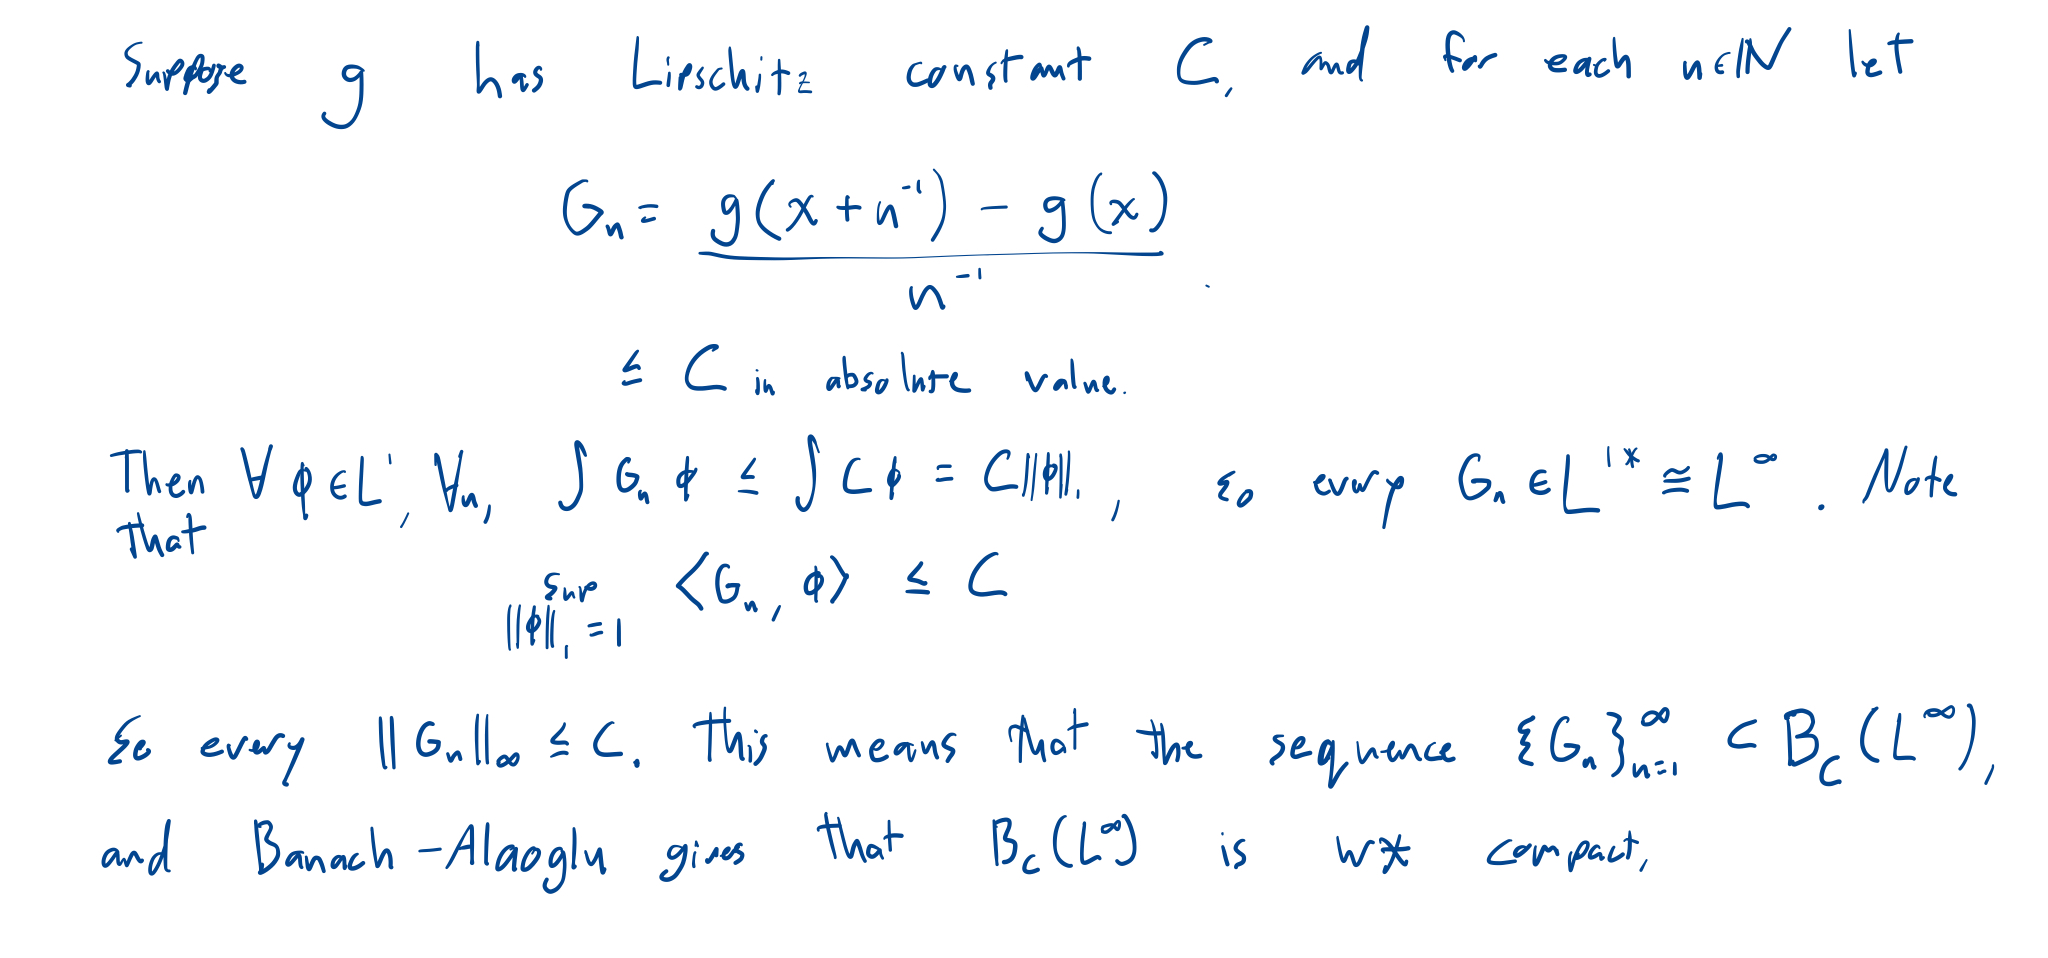 Suppose g has Lipschitz constant C, and for each n∈ℕ let
Gₙ = g(x + n⁻¹) − g(x)
n⁻¹ .
≤ C in absolute value.
Then ∀ ϕ ∈ L¹, ∀n, ∫ Gₙ ϕ ≤ ∫ C ϕ = C‖ϕ‖₁ , so every Gₙ ∈ L¹* ≅ L^∞ . Note
that
sup ⟨Gₙ, ϕ⟩ ≤ C
‖ϕ‖₁ = 1
So every ‖Gₙ‖_∞ ≤ C. This means that the sequence {Gₙ}_{n=1}^∞ ⊂ B_C (L^∞),
and Banach-Alaoglu gives that B_C (L^∞) is w* compact,